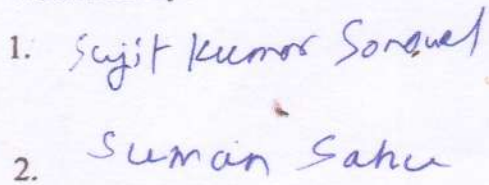 1. Sujit Kumar Sonowal
2. Suman Sahu